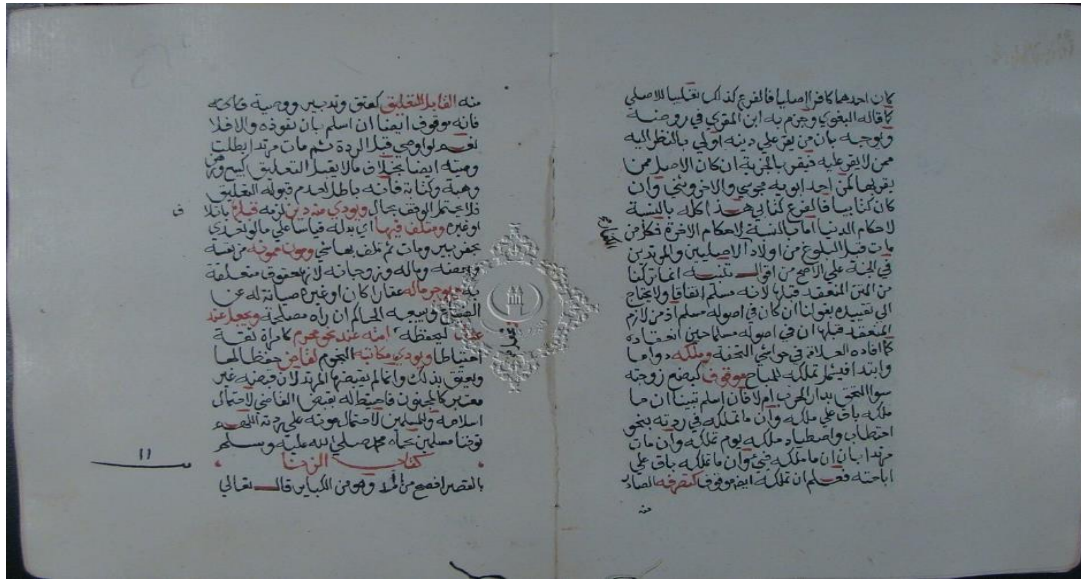 كان احدهما كافرا اصليا فالفرع كذلك تغليبا للاصلي
كما قاله البغوي وجزم به ابن المقري في روضه
ويوجه بان من يقر علي دينه اولي بالنظر اليه
ممن لا يقر عليه فيقر بالجزية ان كان الاصل ممن
يقر بها كمن احد ابويه مجوسي والاخر وثني وان
كان كتابيا فالفرع كتابي هذا كله بالنسبة
لاحكام الدنيا اما بالنسبة لاحكام الاخرة فكل من
مات قبل البلوغ من اولاد الاصليين والمرتدين
في الجنة علي الاصح من اقوال تنبيه انما تركنا
من المتن المنعقد قبلها لانه مسلم اتفاقا ولا يحتاج
الي تقييده بقولنا ان كان في اصوله مسلم اذ من لازم
المنعقد قبلها ان في اصوله مسلما حين انعقاده
كما افاده العلامة في حواشي التحفة وملكه دواما
وابتدا فيشمل تملكه للمباح موقوف كبضع زوجته
سوا التحق بدار الحرب ام لا فان اسلم تبينا ان ما
ملكه باق علي ملكه وان ما تملكه في ردته بنحو
احتطاب واصطياد ملكه يوم تملكه وان مات
مرتدا بان ان ما ملكه فيء وان ما تملكه باق علي
اباحته فعلم ان تملكه ايضا موقوف كتصرفه الصادر
منه
منه القابل للتعليق كعتق وتدبير ووصية
فانه موقوف ايضا ان اسلم بان نفوذه والا فلا
نعم لو اوصي قبل الردة ثم مات مرتدا بطلت
وصيته ايضا بخلاف ما لا يقبل التعليق كبيع ورهن
وهبة وكتابة فانه باطل لعدم قبوله التعليق
فلا يحتمل الوقف بحال ويودي منه دين لزمه قبلها باتلاف
او غيره ومتلف فيها اي بدله قياسا علي ما لو تعدي
بحفر بير ومات ثم تلف بها شي ومونة ممونه من نفسه
وبعضه وماله وزوجاته لانها حقوق متعلقة
به ويوجر ماله عقارا كان او غيره صيانة له عن
الضياع ويبيعه الحاكم ان راه مصلحة ويجعل عند
عدل يحفظه وامته عند نحو محرم كامراة ثقة
احتياطا ويودي مكاتبه النجوم لقاض حفظا لها
ويعتق بذلك وانما لم يقبضها المرتد لان قبضه غير
معتبر كالمجنون فاحتيط له بقبض القاضي لاحتمال
اسلامه وللمسلمين لاحتمال موته علي ردته اللهم
توفنا مسلمين بجاه محمد صلي الله عليه وسلم
كتاب الزنا
بالقصر افصح من المد وهو من الكباير قال تعالي
١١